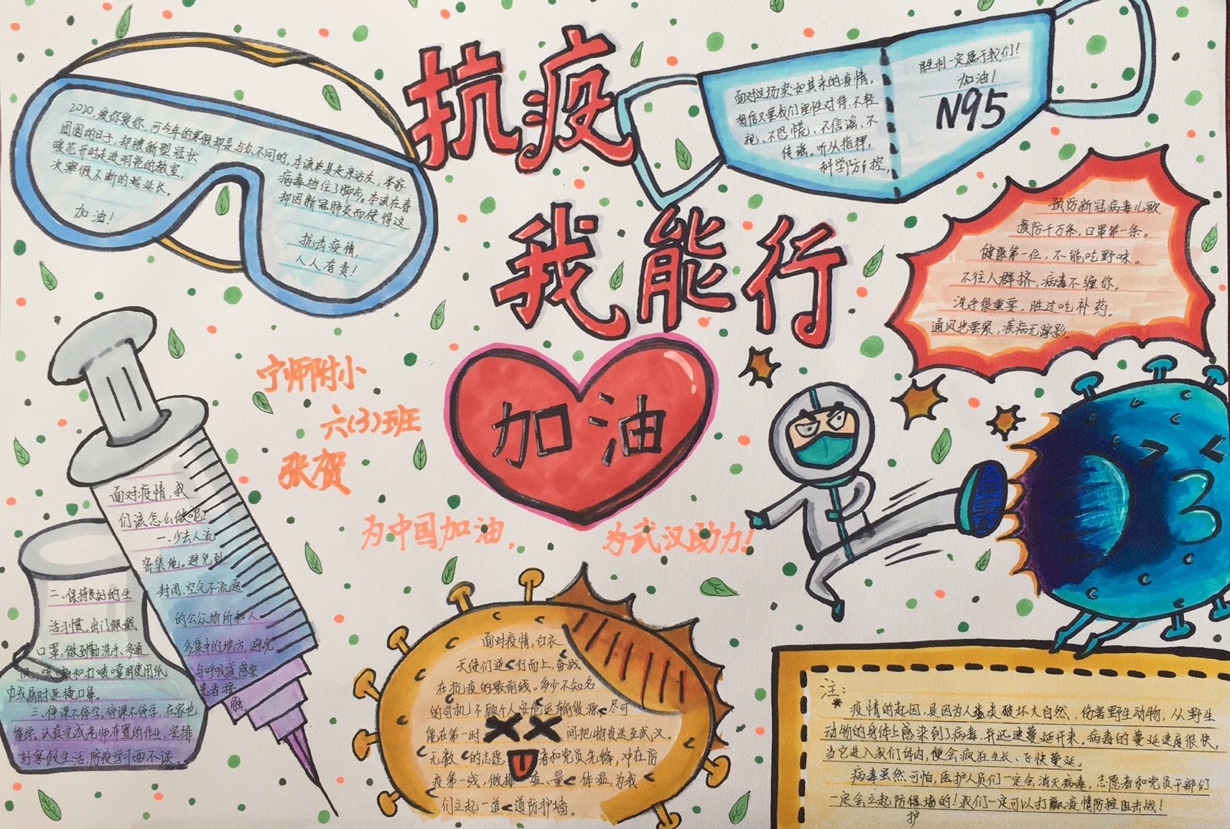 抗疫
我能行
2020,爱你爱你,可今年的寒假却是与众不同的,本该本是走亲访友,举家
团圆的日子,却被新型冠状
病毒挡住了脚步。本该在春
暖花开时走进明亮的教室,
却因新冠肺炎而使得这
次寒假不断的延延长。
加油!
抗击疫情,
人人有责!
面对这场突如其来的疫情,
相信只要我们理性对待,不轻
视、不恐慌、不信谣、不
传谣,听从指挥,
科学防控,
胜利一定属于我们!
加油!
N95
预防新冠病毒儿歌
预防千万条,口罩第一条。
健康第一位,不能吃野味。
不往人群挤,病毒不缠你。
洗手很重要,胜过吃补药。
通风也要紧,疾病无踪影。
宁师附小
六(3)班
张贺
加油
为中国加油,
为武汉助力!
面对疫情,我
们该怎么做呢?
一、少去人流
密集地。避免到
封闭、空气不流通
的公众场所和人
多集中的地方,避免
与呼吸道感染
患者接
触
二、保持良好的生
活习惯,出门佩戴
口罩,做到勤洗手、多通
咳嗽和打喷嚏时使用纸
巾或肘遮掩口鼻。
三、停课不停学,在家也
认真完成老师布置的作业,安排
好寒假生活,防疫学习两不误。
面对疫情,白衣
天使们逆行而上,奋战
在抗疫的最前线。多少不知名
的司机不顾个人安危运输物资,尽可
能在第一时间把物资送至武汉。
无数的志愿者和党员先锋,冲在防
疫第一线,做排查、量体温,为我
们立起一道道防护墙。
注:
*疫情的起因,是因为人类破坏大自然,伤害野生动物,从野生
动物的身体上感染到了病毒,并迅速蔓延开来。病毒的蔓延速度很快,
当它进入我们体内,便会疯狂生长、飞快蔓延。
病毒虽然可怕,医护人员们一定会消灭病毒,志愿者和党员干部们
一定会立起防护墙的!我们一定可以打赢疫情防控阻击战!